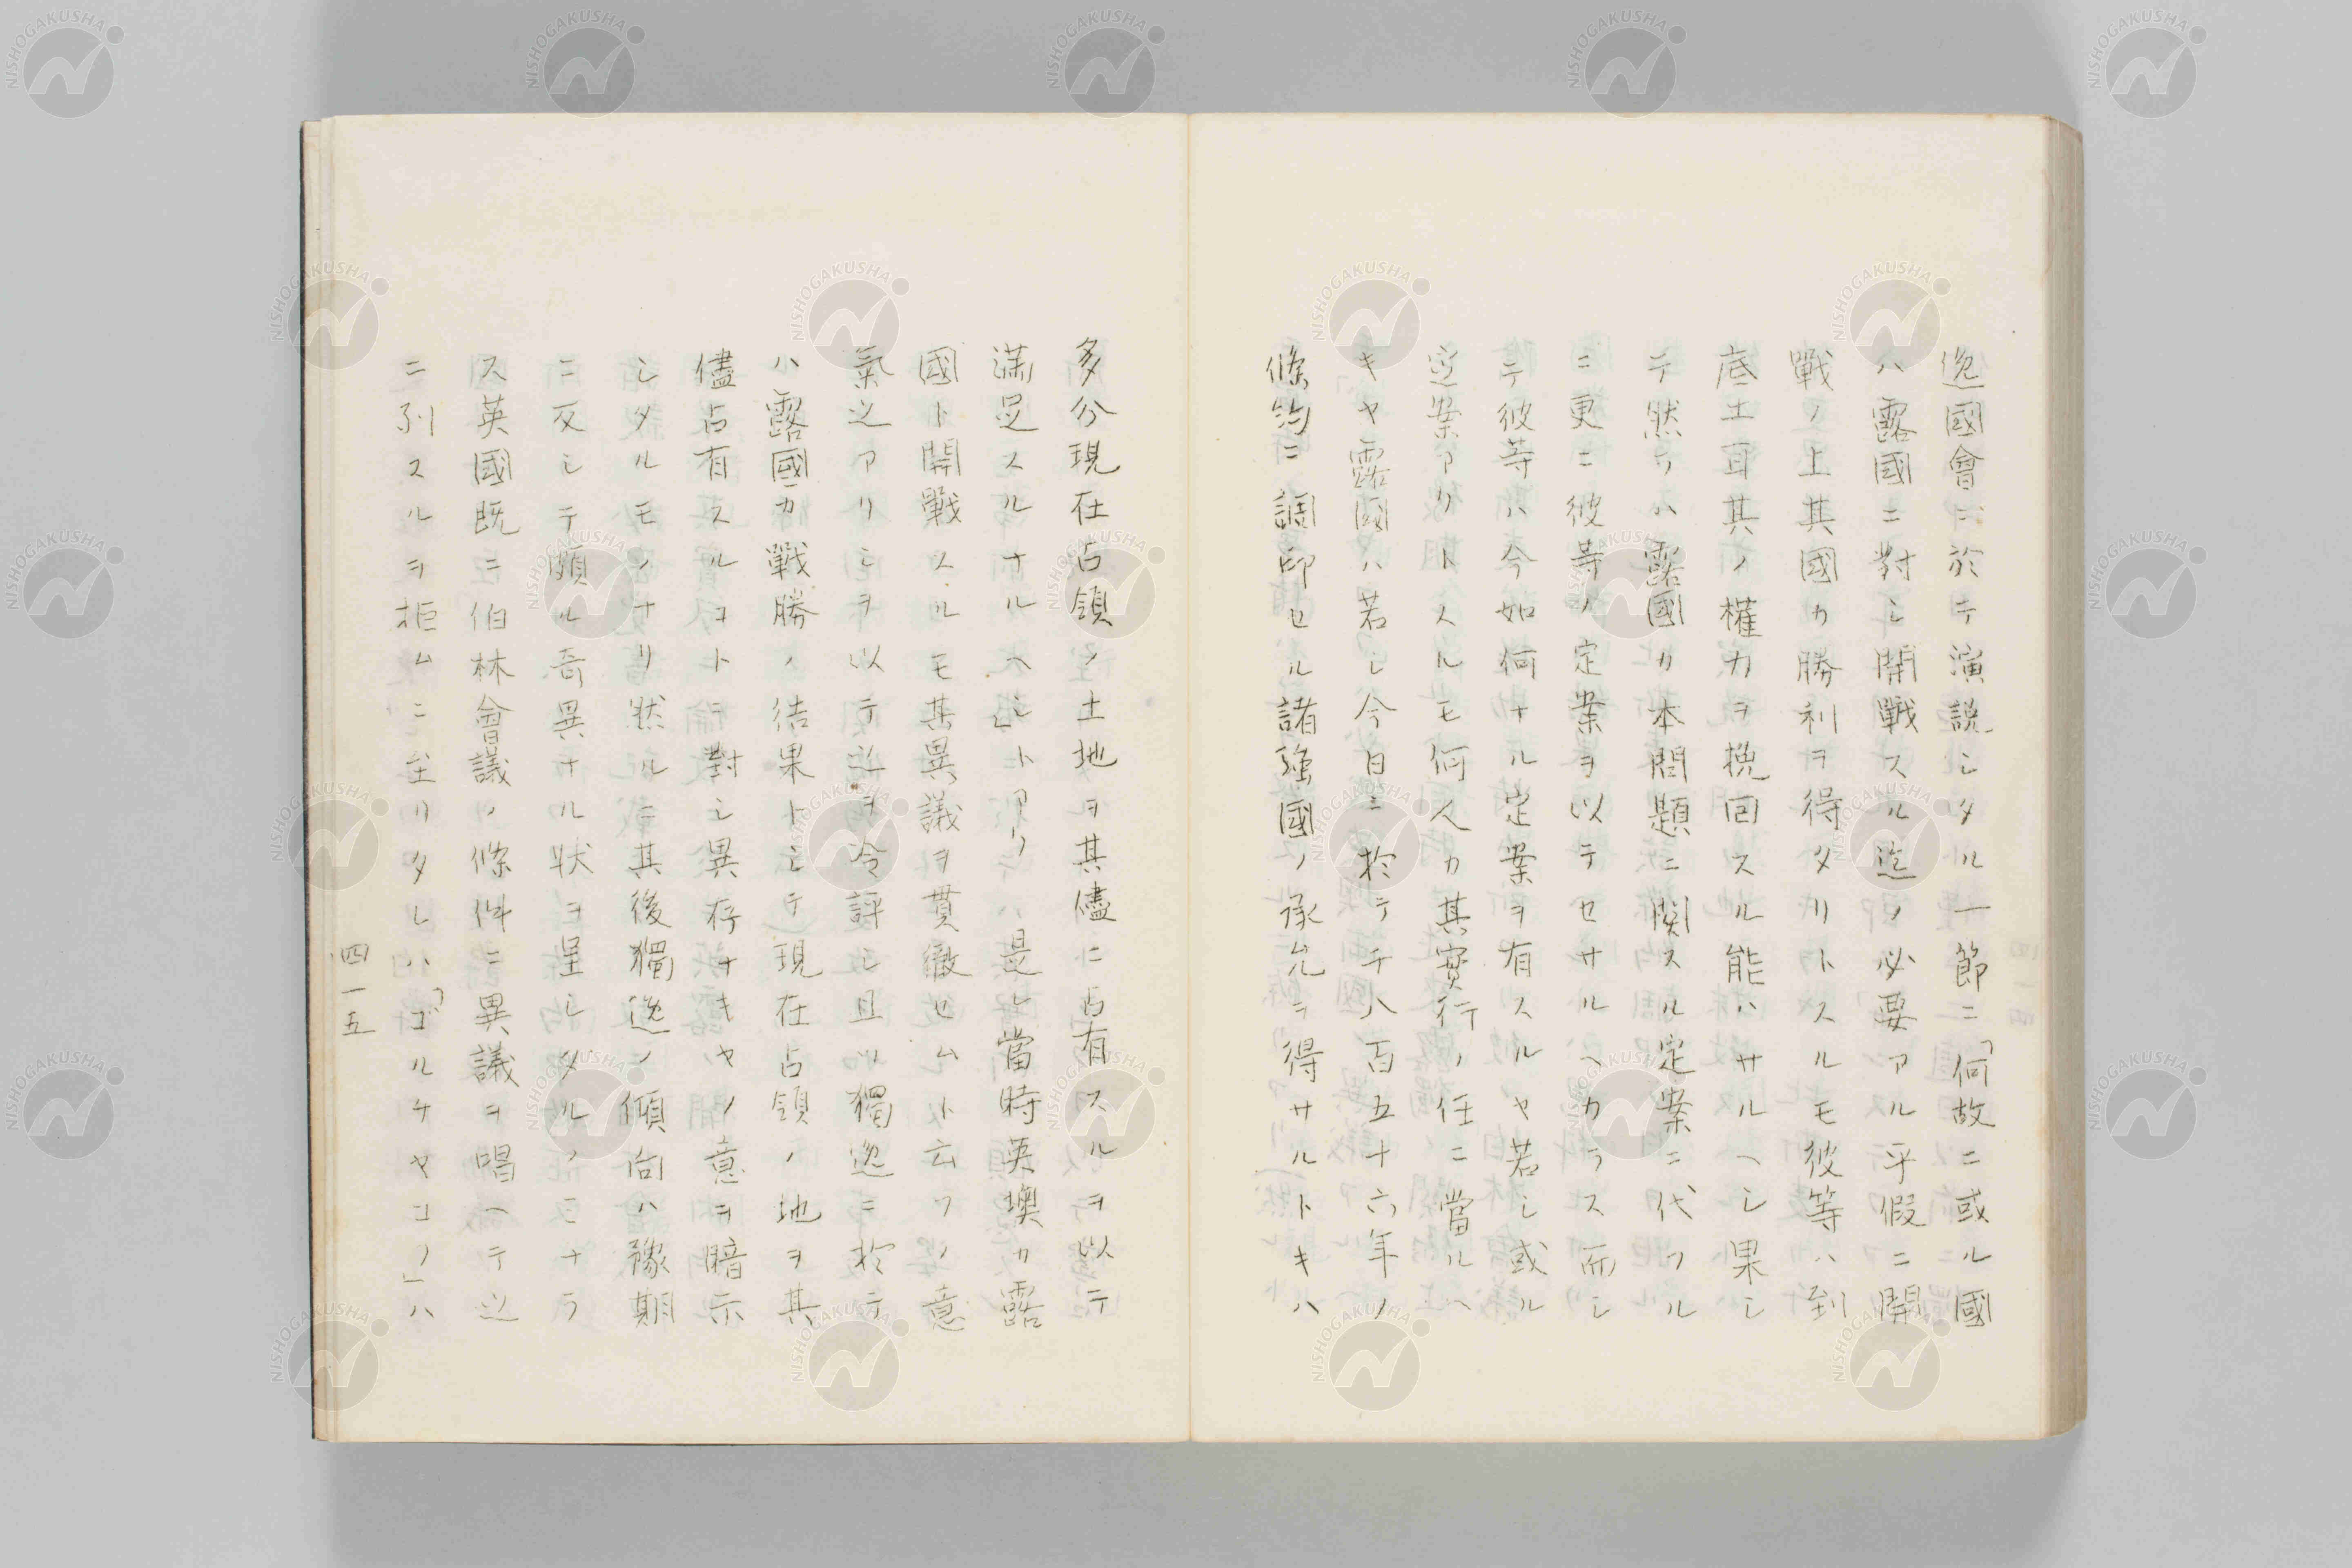 逸國會ニ於テ演説シタル一節ニ「何故ニ或ル國
ハ露國ニ對シ開戰スル迄ノ必要アル乎假ニ開
戰ノ上其國カ勝利ヲ得タリトスルモ彼等ハ到
底土耳其ノ權力ヲ挽回スル能ハサルヘシ果シ
テ然ラハ露國カ本問題ニ関スル定案ニ代フル
ニ更ニ彼等ノ定案ヲ以テセサルヘカラス而シ
テ彼等ハ今如何ナル定案ヲ有スルヤ若シ或ル
定案アリトスルモ何人カ其實行ノ任ニ當ルヘ
キヤ露國ハ若シ今日ニ於テ千八百五十六年ノ
條約ニ調印セル諸強國ノ承允ヲ得サルトキハ
多分現在占領ノ土地ヲ其儘ニ占有スルヲ以テ
満足スルナルヘシ」トアリ是レ當時英墺カ露
國ト開戰スルモ其異議ヲ貫徹セムト云フノ意
氣込アリシヲ以テ之ヲ冷評シ且ツ獨逸ニ於テ
ハ露國カ戰勝ノ結果トシテ現在占領ノ地ヲ其
儘占有スルコトニ對シ異存ナキヤノ意ヲ暗示
シタルモノナリ然ルニ其後獨逸ノ傾向ハ豫期
ニ反シテ頗ル奇異ナル狀ヲ呈シタルノミナラ
ス英國既ニ伯林會議ノ條件ニ異議ヲ唱ヘテ之
ニ列スルヲ拒ムニ至リタレハ「ゴルチヤコノ」ハ
四一五
NISHOGAKUSHA